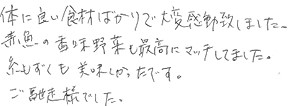 体に良い食材ばかりで大変感動致しました。
赤魚の香味野菜も最高にマッチしてました。
糸もずくも美味しかったです。
ご馳走様でした。